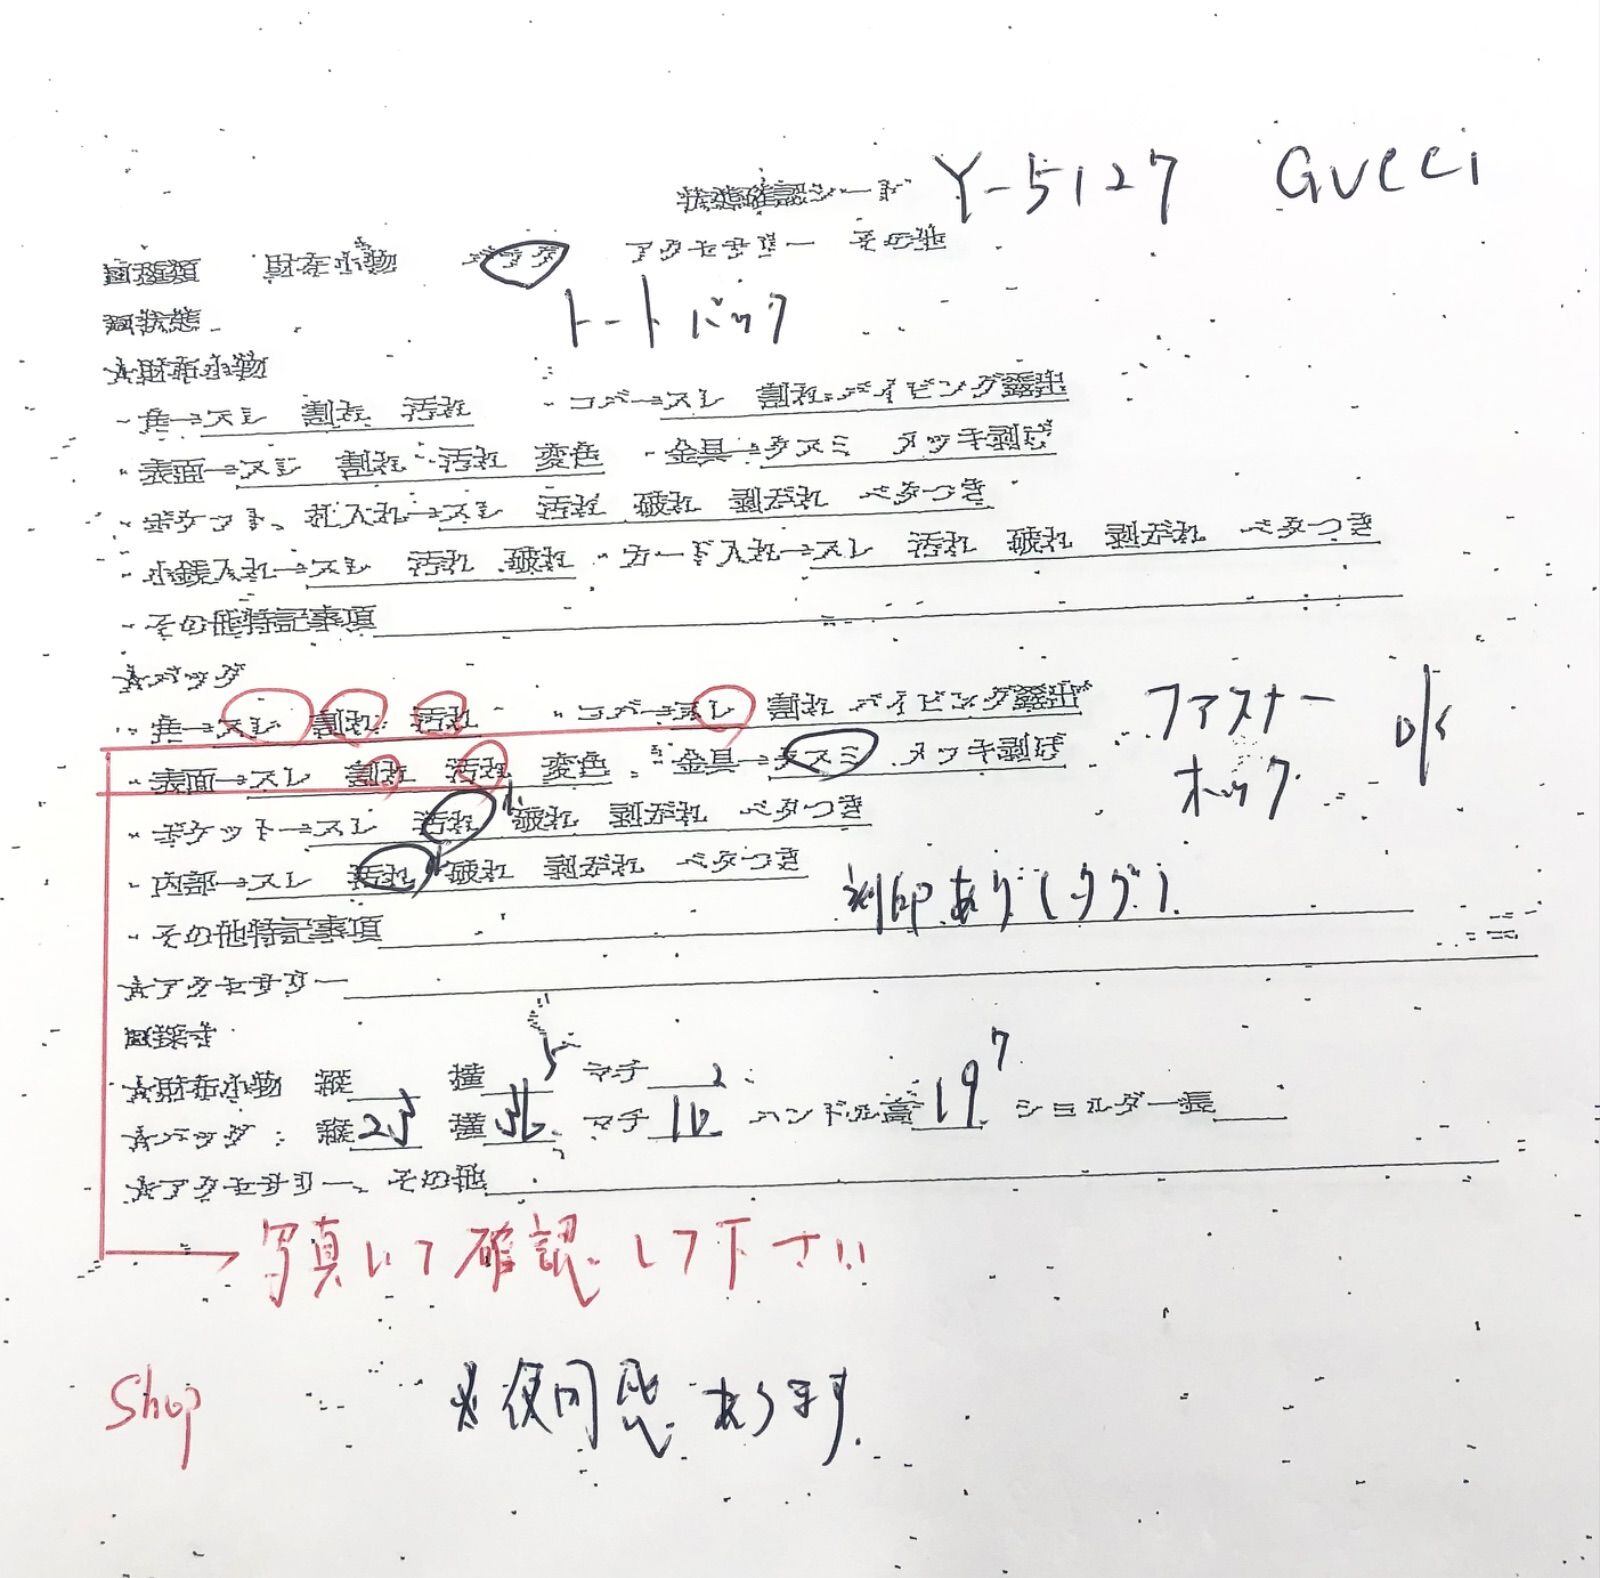 状態確認シート Y-5127 GUCCI
■種類 財布小物 バッグ アクセサリー その他
トートバック
■状態
☆財布小物
・角→スレ 割れ 汚れ ・コバ→スレ 割れ パイピング露出
・表面→スレ 割れ 汚れ 変色 ・金具→クスミ メッキ剥げ
・ポケット、札入れ→スレ 汚れ 破れ 剥がれ ベタつき
・小銭入れ→スレ 汚れ 破れ ・カード入れ→スレ 汚れ 破れ 剥がれ ベタつき
・その他特記事項
☆バッグ
・角→スレ 割れ 汚れ ・コバ→スレ 割れ パイピング露出 ファスナー
・表面→スレ 割れ 汚れ 変色 ・金具→クスミ メッキ剥げ ホック OK
・ポケット→スレ 汚れ 破れ 剥がれ ベタつき
・内部→スレ 汚れ 破れ 剥がれ ベタつき
・その他特記事項 刻印あり(タグ)
☆アクセサリー
■採寸
☆財布小物 縦 横 5 マチ 2 7
☆バッグ: 縦 25 横 36 マチ 10 ハンドル高 19 ショルダー長
☆アクセサリー、その他
写真にて確認して下さい
Shop ※使用感あります.